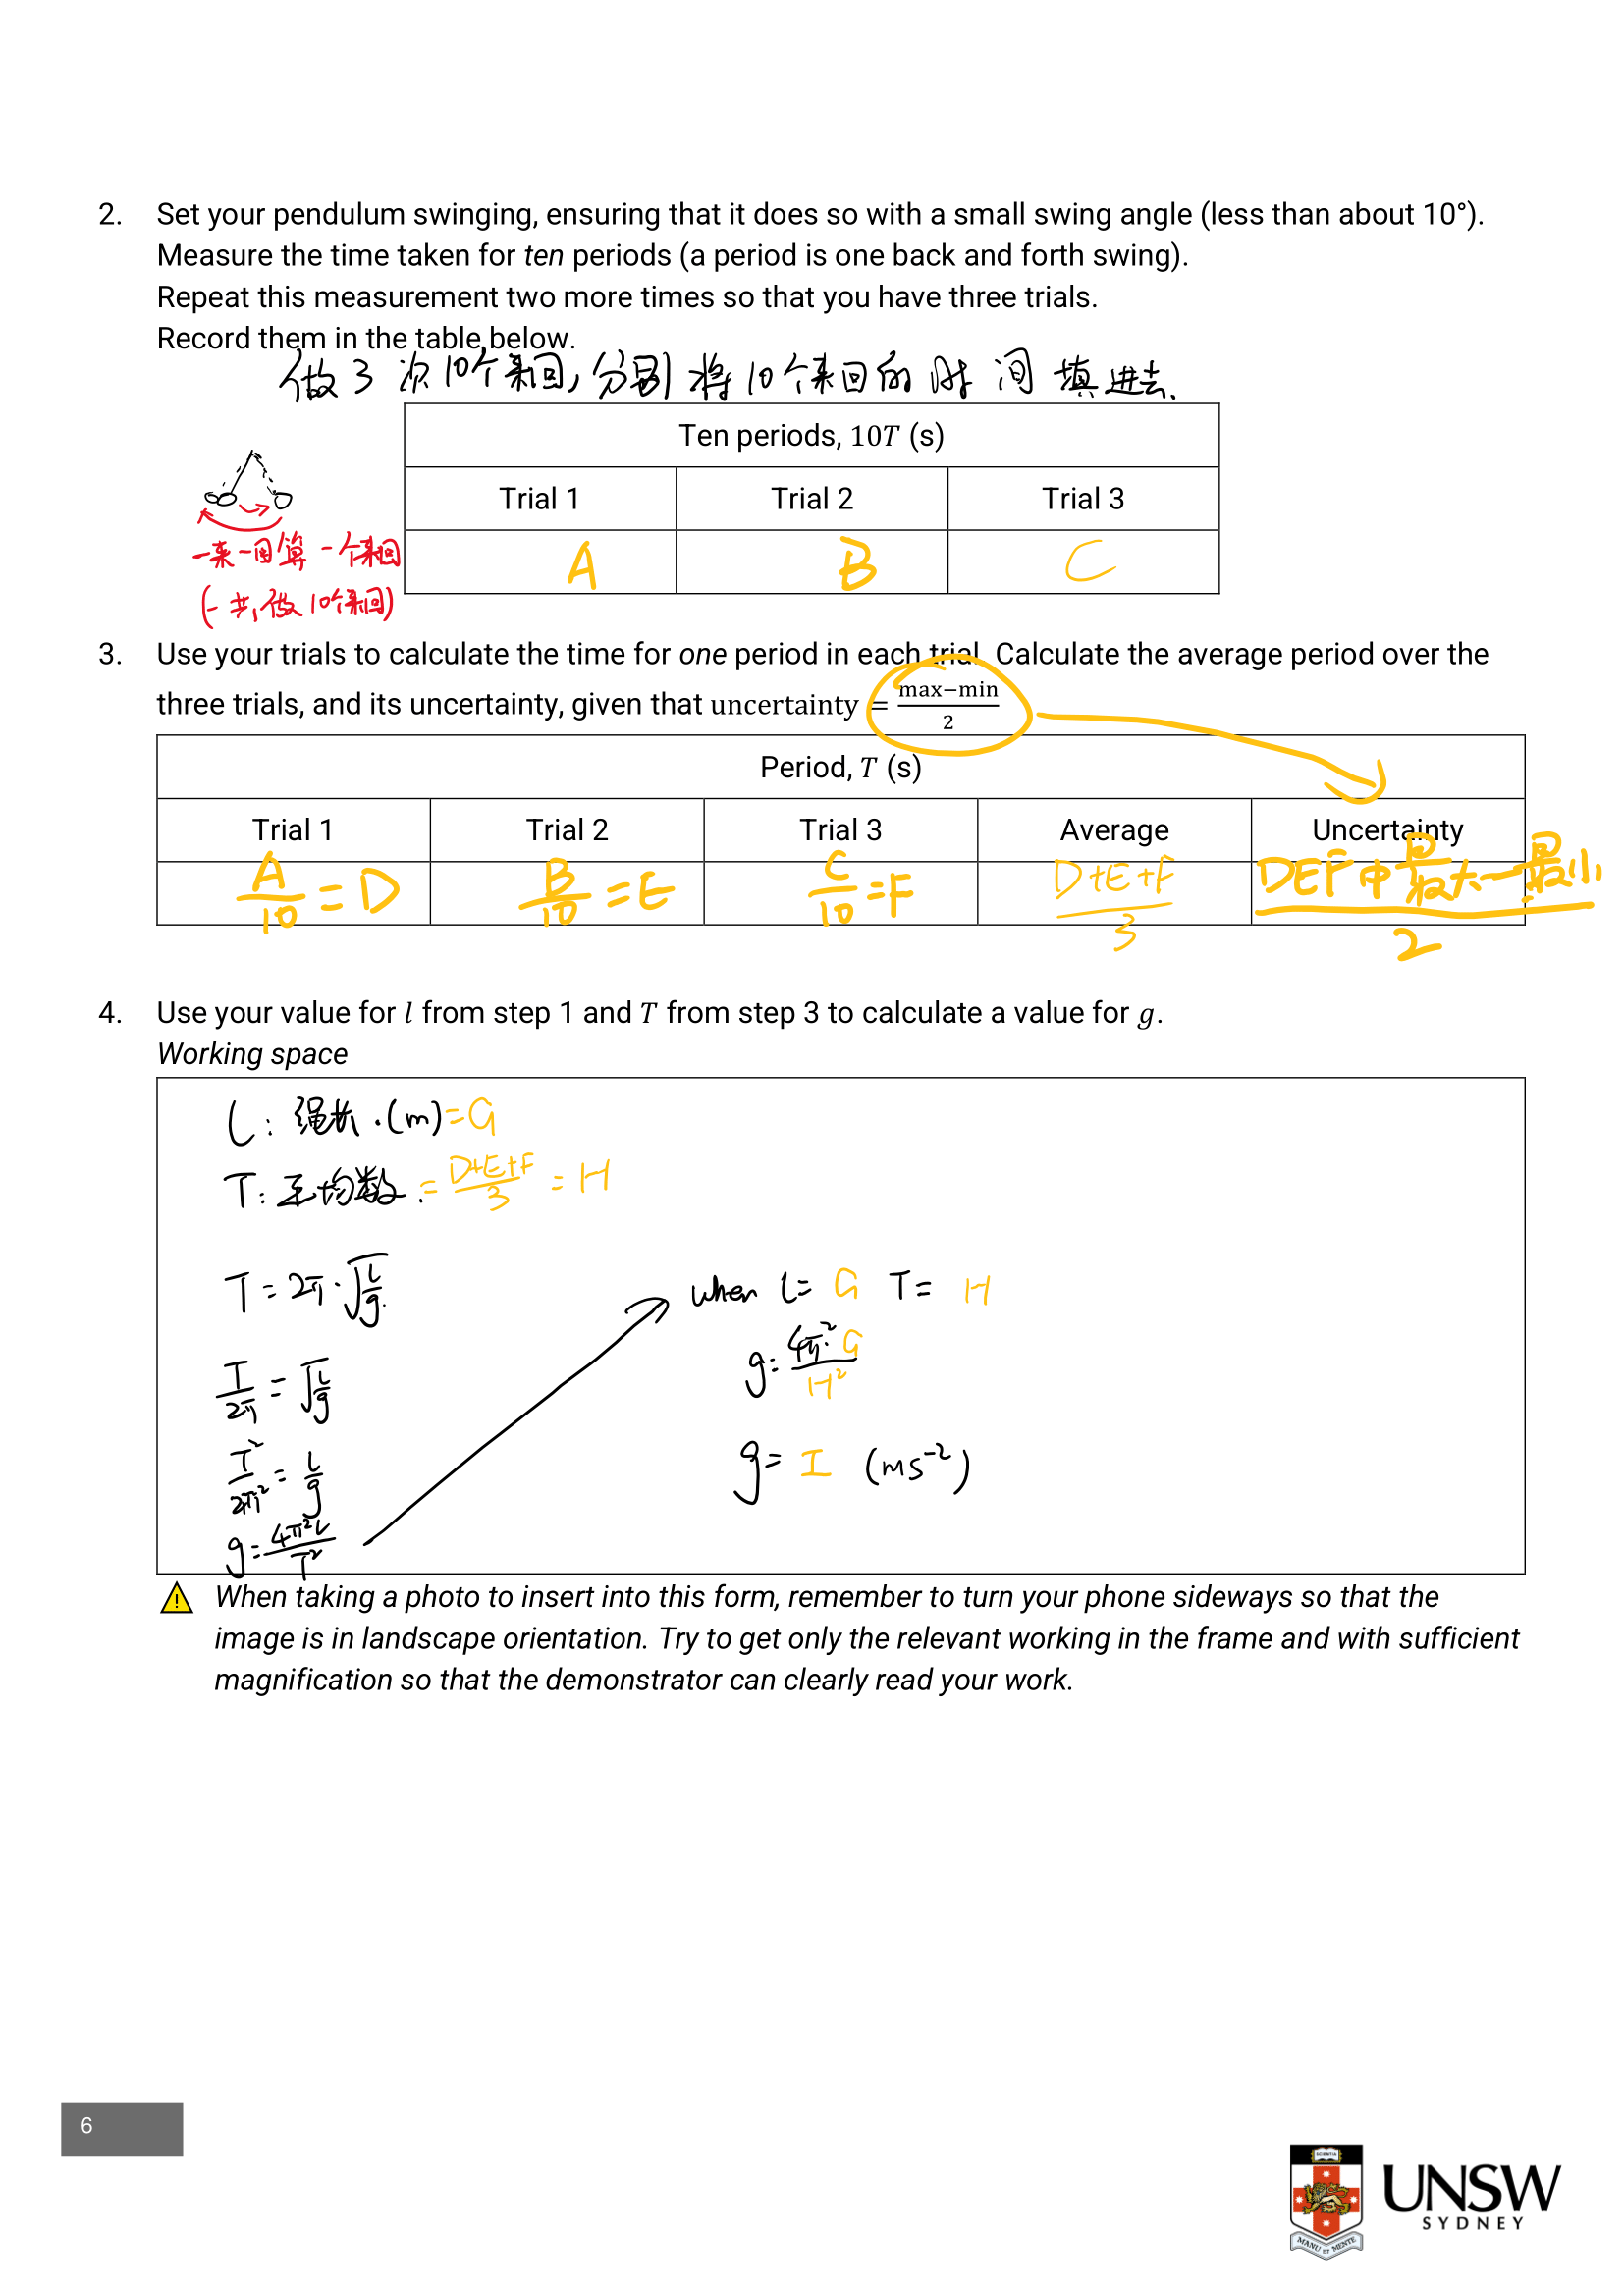 2. Set your pendulum swinging, ensuring that it does so with a small swing angle (less than about 10°).
Measure the time taken for ten periods (a period is one back and forth swing).
Repeat this measurement two more times so that you have three trials.
Record them in the table below.
做3次10个来回,分别将10个来回的时间填进去.
Ten periods, 10T (s)
Trial 1 Trial 2 Trial 3
A B C
一来一回算一个来回
(一共做10个来回)
3. Use your trials to calculate the time for one period in each trial. Calculate the average period over the
three trials, and its uncertainty, given that uncertainty = max−min / 2
Period, T (s)
Trial 1 Trial 2 Trial 3 Average Uncertainty
A/10 = D B/10 = E C/10 = F D+E+F/3 DEF中最大一最小/2
4. Use your value for l from step 1 and T from step 3 to calculate a value for g.
Working space
L: 绳长.(m) = G
T: 平均数. = D+E+F/3 = H
T = 2π·√L/g
T/2π = √L/g
T²/2π² = L/g
g = 4π²L/T²
when L= G T= H
g = 4π²·G/H²
g = I (ms⁻²)
When taking a photo to insert into this form, remember to turn your phone sideways so that the
image is in landscape orientation. Try to get only the relevant working in the frame and with sufficient
magnification so that the demonstrator can clearly read your work.
6
scientia
MANU ET MENTE
UNSW
SYDNEY